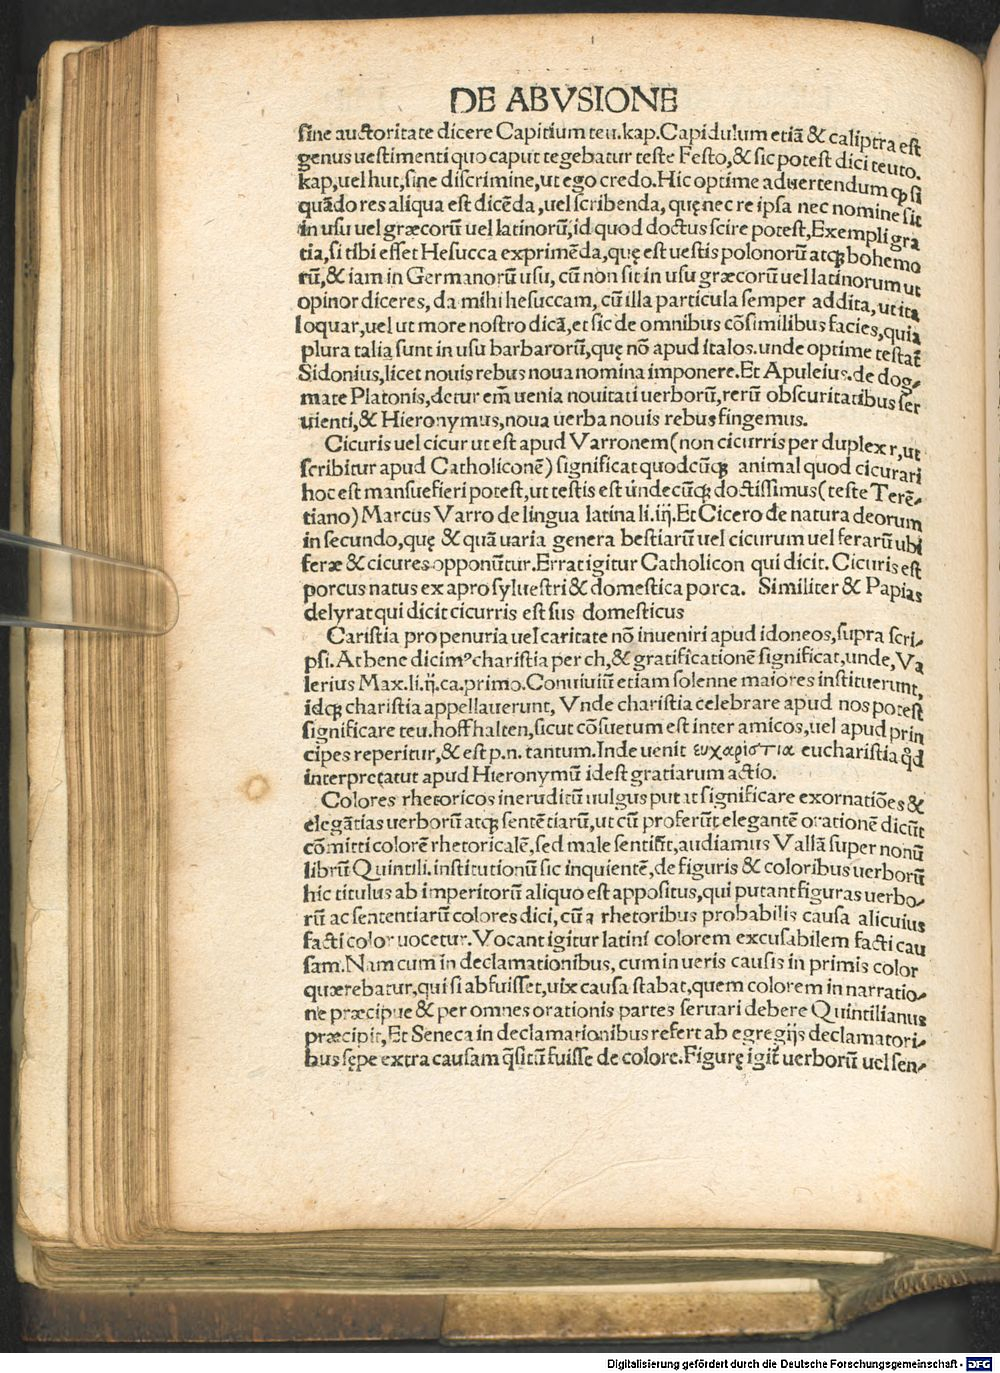 DE ABVSIONE
ſine auctoritate dicere Capitium teu.kap.Capidulum etiā & caliptra eſt
genus ueſtimenti quo caput tegebatur teſte Feſto,& ſic poteſt dici teuto.
kap,uel hut,ſine diſcrimine,ut ego credo.Hic optime aduertendum ꝙ ſi
quādo res aliqua eſt dicēda,uel ſcribenda, quę nec re ipſa nec nomine ſit
in uſu uel græcorū uel latinorū,id quod doctus ſcire poteſt,Exempli gra
tia,ſi tibi eſſet Heſucca exprimēda,quę eſt ueſtis polonorū atqꝫ bohemo
rū,& iam in Germanorū uſu, cū non ſit in uſu græcorū uel latinorum ut
opinor diceres, da mihi heſuccam, cū illa particula ſemper addita, ut ita
loquar,uel ut more noſtro dicā,et ſic de omnibus cōſimilibus facies,quia
plura talia ſunt in uſu barbarorū,quę nō apud italos.unde optime teſtat̄
Sidonius,licet nouis rebus noua nomina imponere.Et Apuleius.de dog⸗
mate Platonis,detur em̄ uenia nouitati uerborū,rerū obſcuritatibus ſer
uienti,& Hieronymus,noua uerba nouis rebus fingemus.
Cicuris uel cicur ut eſt apud Varronem(non cicurris per duplex r,ut
ſcribitur apud Catholiconē)ſignificat quodcūqꝫ animal quod cicurari
hoc eſt manſuefieri poteſt,ut teſtis eſt undecūqꝫ doctiſſimus(teſte Terē⸗
tiano)Marcus Varro de lingua latina li.iiij.Et Cicero de natura deorum
in ſecundo,quę & quā uaria genera beſtiarū uel cicurum uel ferarū ubi
feræ & cicures opponūtur.Errat igitur Catholicon qui dicit. Cicuris eſt
porcus natus ex apro ſylueſtri & domeſtica porca. Similiter & Papias
delyrat qui dicit cicurris eſt ſus domeſticus
Cariſtia pro penuria uel caritate nō inueniri apud idoneos,ſupra ſcri⸗
pſi.At bene dicimꝰ chariſtia per ch,& gratificationē ſignificat,unde,Va
lerius Max.li.ij.ca.primo.Conuiuiū etiam ſolenne maiores inſtituerunt,
idqꝫ chariſtia appellauerunt, Vnde chariſtia celebrare apud nos poteſt
ſignificare teu.hoffhalten,ſicut cōſuetum eſt inter amicos,uel apud prin
cipes reperitur,& eſt p.n. tantum.Inde uenit ευχαριστια euchariſtia qd̄
interpretatut apud Hieronymū ideſt gratiarum actio.
Colores rhetoricos ineruditū uulgus putat ſignificare exornatiōes &
elegātias uerborū atqꝫ ſentētiarū,ut cū proferūt elegantē orationē dicūt
cōmitti colorē rhetoricalē,ſed male ſentiūt,audiamus Vallā ſuper nonū
librū Quintili.inſtitutionū ſic inquientē,de figuris & coloribus uerborū
hic titulus ab imperitorū aliquo eſt appoſitus,qui putant figuras uerbo⸗
rū ac ſententiarū colores dici, cū a rhetoribus probabilis cauſa alicuius
facti color uocetur.Vocant igitur latini colorem excuſabilem facti cau
ſam.Nam cum in declamationibus, cum in ueris cauſis in primis color
quærebatur,qui ſi abfuiſſet,uix cauſa ſtabat,quem colorem in narratio⸗
ne præcipue & per omnes orationis partes ſeruari debere Quintilianus
præcipit,Et Seneca in declamationibus refert ab egregijs declamatori⸗
bus ſępe extra cauſam q̄ſitū fuiſſe de colore.Figurę igit̄ uerborū uel ſen⸗
Digitalisierung gefördert durch die Deutsche Forschungsgemeinschaft - DFG